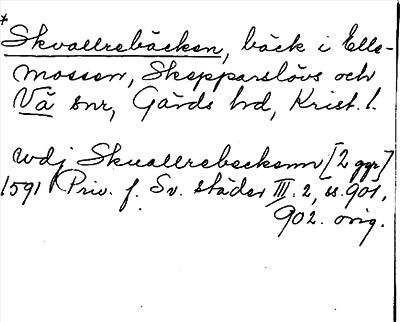 * Skvallrebäcken, bäck i Elle-
mossen, Skepparslövs och
Vä snr, Gärds hd, Krist. l.
wdj Skuallrebeckenn [2 ggr]
1591 Priv. f. Sv. städer III. 2, ss. 901,
902. orig.